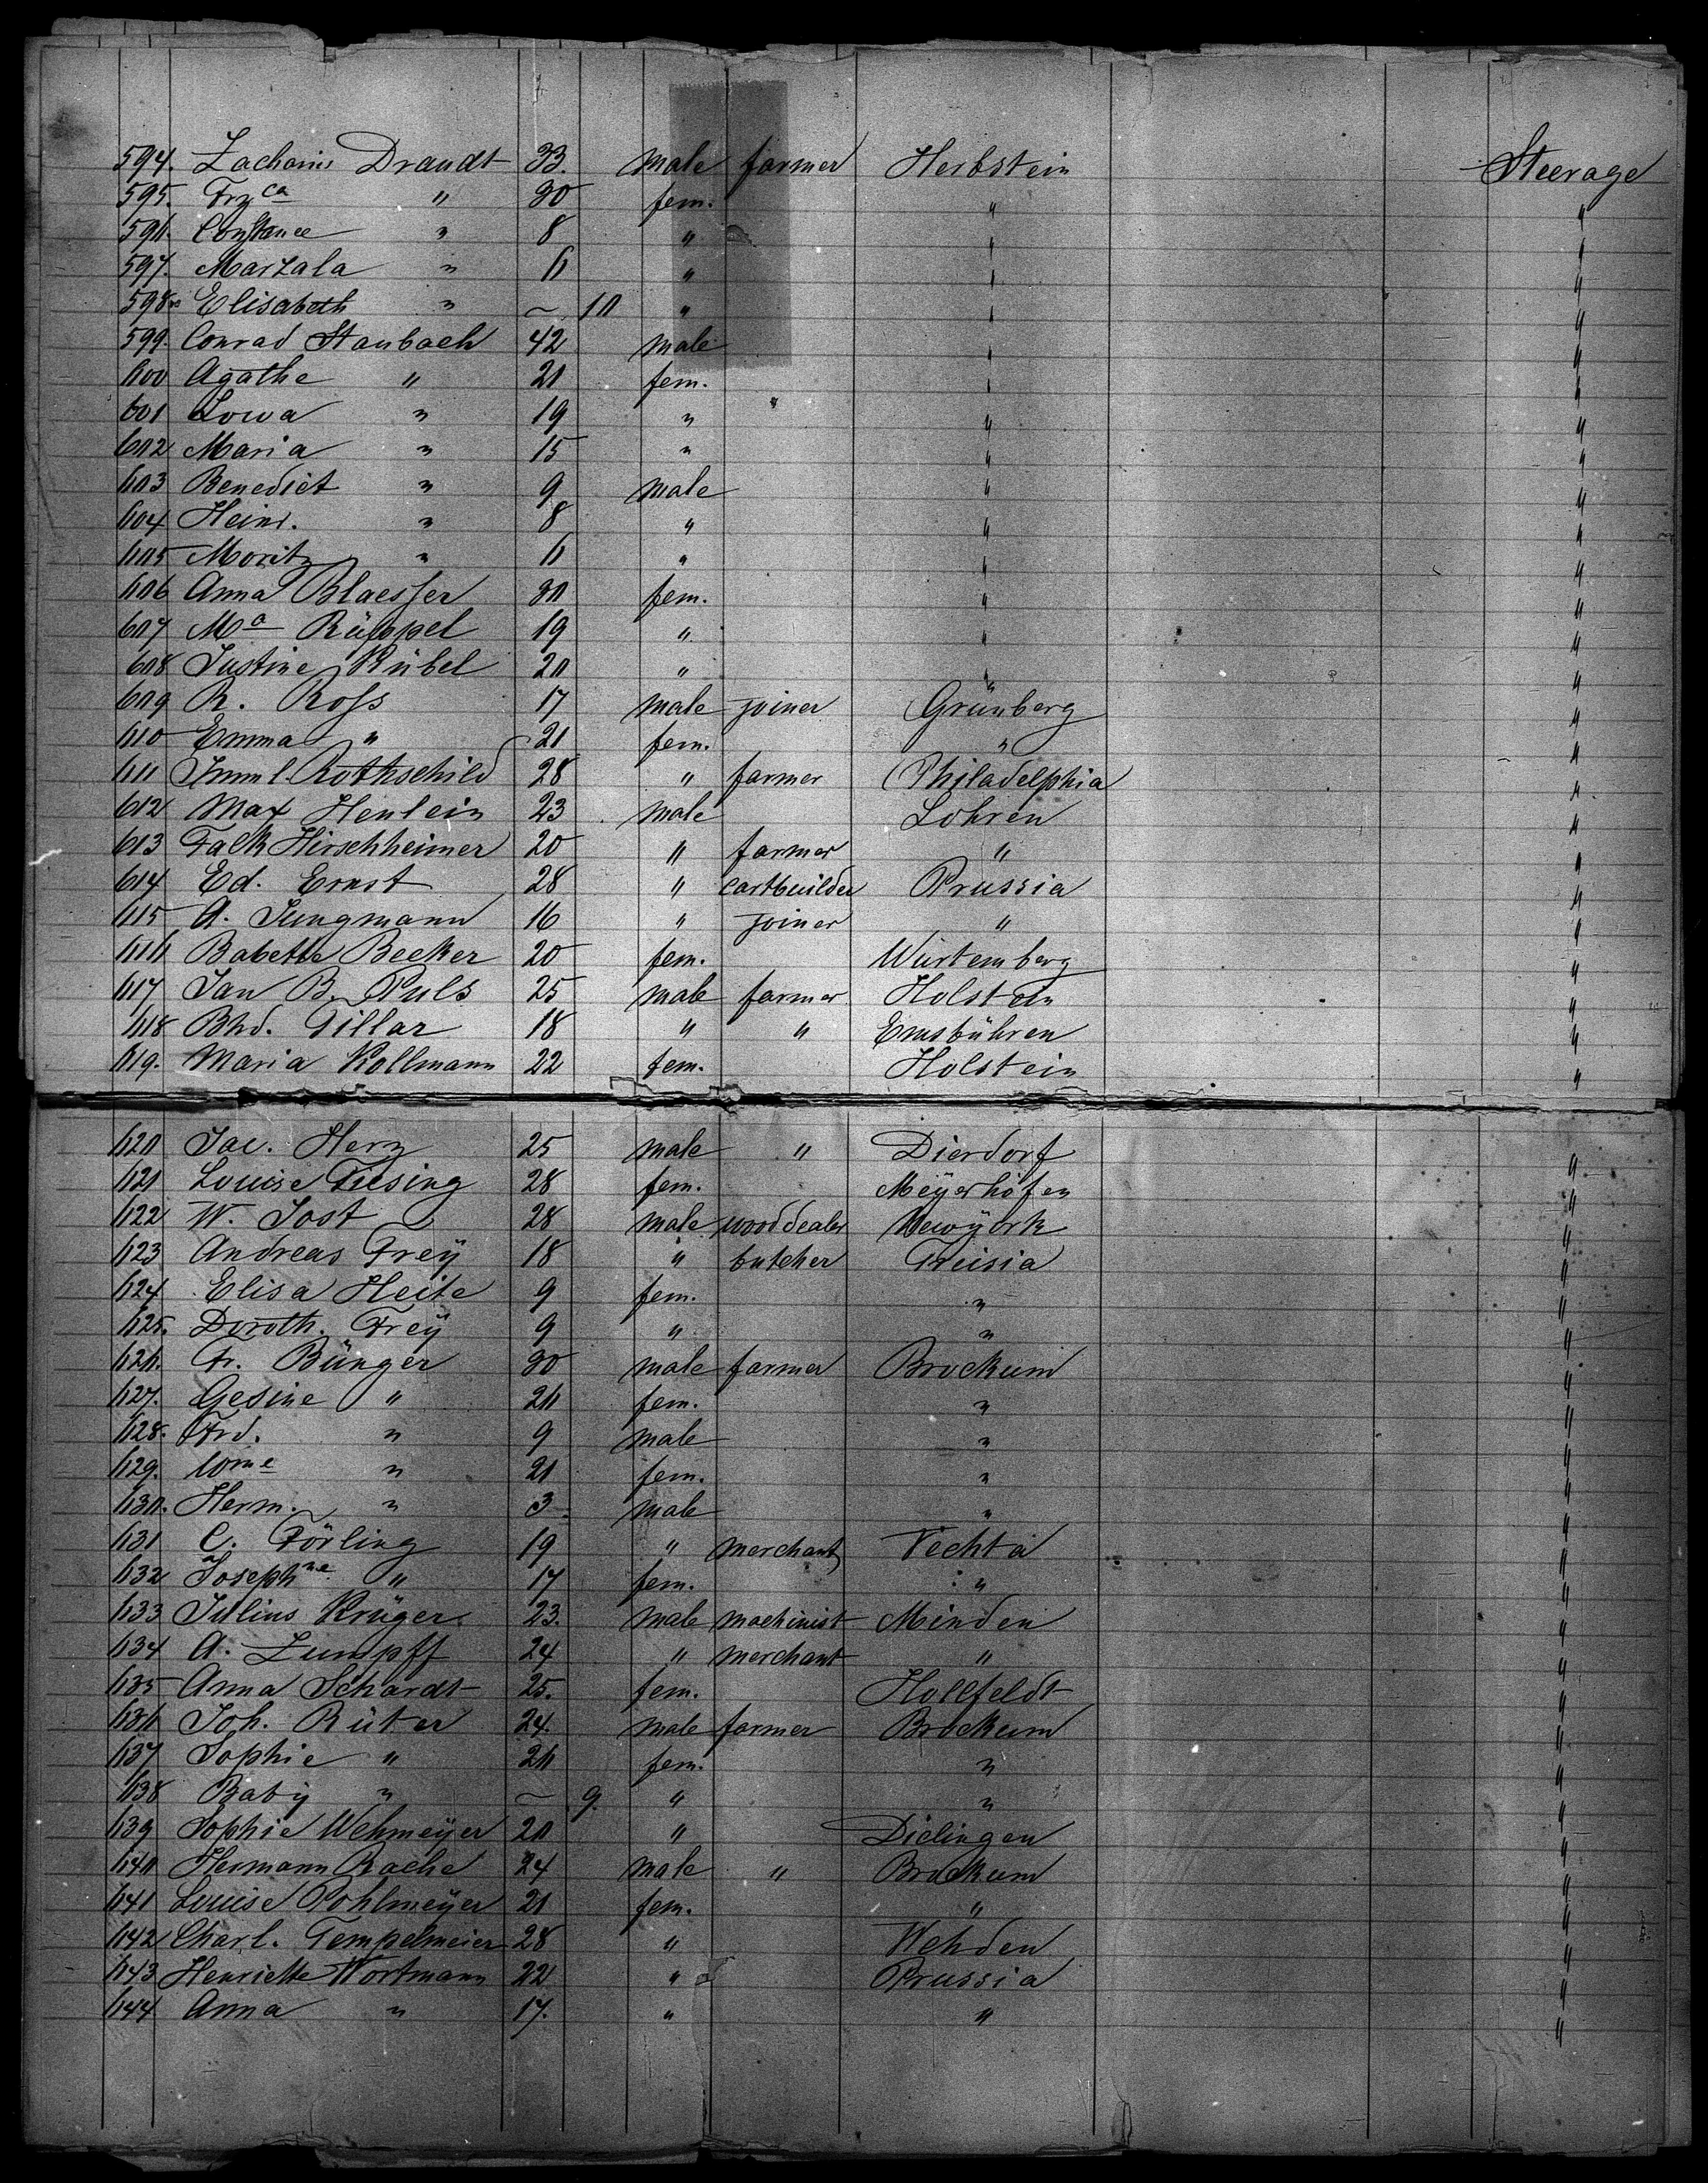 594. Zacharias Drandt 33. male farmer Herbstein Steerage
595. Frz ca " 30 fem. " "
596. Constance " 8 " " "
597. Marzala " 6 " " "
598. Elisabeth " ~ 10 " " "
599. Conrad Staubach 42 male " "
600 Agathe " 21 fem. " "
601 Lowa " 19 " " " "
602 Maria " 15 " " "
603 Benedict " 9 male " "
604 Heinr. " 8 " " "
605 Moritz " 6 " " "
606 Anna Blaesser 30 fem. " "
607 Ma Rüppel 19 " " "
608 Justine Kübel 20 " " "
609 R. Ross 17 male joiner Grünberg "
610 Emma " 21 fem. " "
611 Imml. Rothschild 28 " farmer Philadelphia "
612 Max Henlein 23 male Lohren "
613 Falk Hirschheimer 20 " farmer " "
614 Ed. Ernst 28 " cartbuilder Prussia "
615 A. Jungmann 16 " joiner " "
616 Babette Becker 20 fem. Würtemberg "
617 Jan B. Puls 25 male farmer Holstein "
618 Bhd. Tillar 18 " " Emsbühren "
619. Maria Kollmann 22 fem. Holstein "
620 Jac. Herz 25 male " Dierdorf "
621 Louise Tiesing 28 fem. Meÿerhöfen "
622 W. Jost 28 male wooddealer Newÿork "
623 Andreas Freÿ 18 " butcher Treisia "
624 Elisa Heite 9 fem. " "
625. Doroth. Freÿ 9 " " "
626. Fr. Bünger 30 male farmer Brockum "
627. Gesine " 26 fem. " "
628. Frd. " 9 male " "
629. Wme " 21 fem. " "
630. Herm. " 3 male " "
631 C. Förling 19 " merchant Vechta "
632 Josephne " 17 fem. " "
633 Julius Krüger 23. male machinist Minden "
634 A. Zumpff 24 " merchant " "
635 Anna Schardt 25. fem. Hollfeldt "
636 Joh. Rüter 24. male farmer Brockum "
637 Sophie " 26 fem. " "
638 Baby " ~ 9. " " "
639 Sophie Wehmeÿer 20 " Dielingen "
640 Hermann Rache 24 male " Brockum "
641 Louise Pohlmeÿer 21 fem. " "
642 Charl. Tempelmeier 28 " Wehden "
643 Henriette Wortmann 22 " Prussia "
644 Anna " 17. " " "